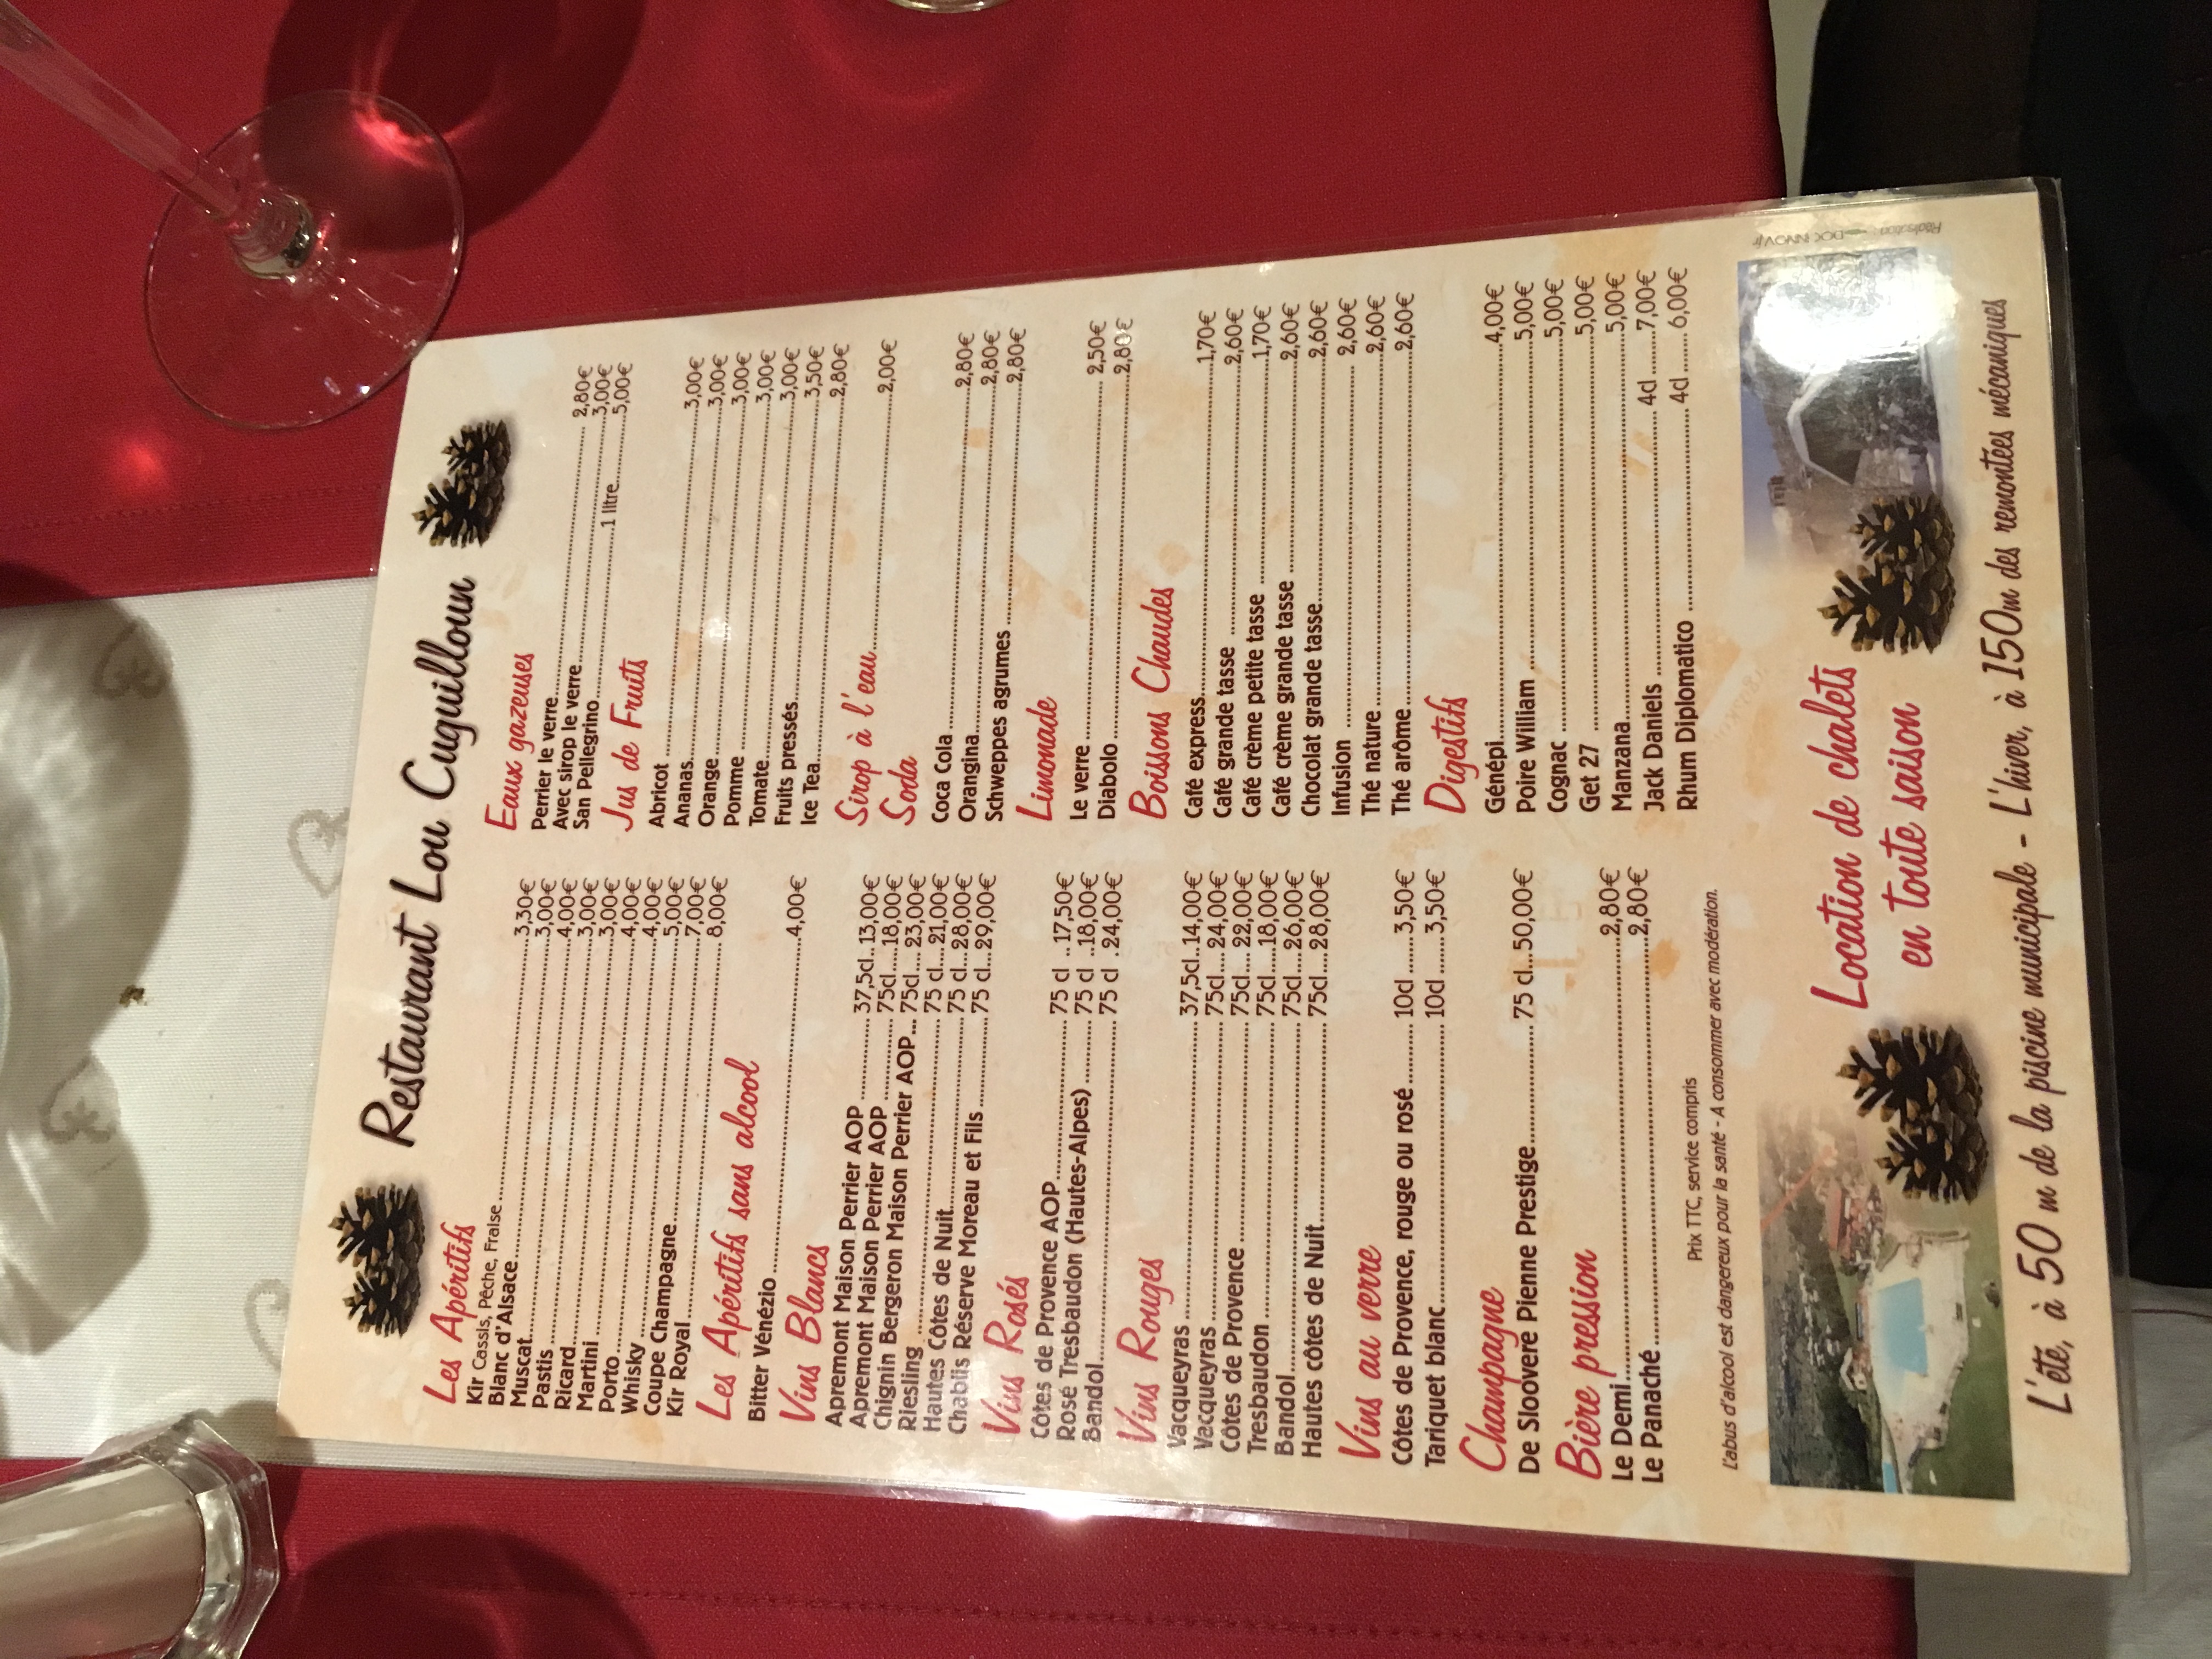 Restaurant Lou Cuguilloun
Les Apéritifs
Kir Cassis, Pêche, Fraise 3,30€
Blanc d'Alsace 3,00€
Muscat 4,00€
Pastis 3,00€
Ricard 3,00€
Martini 4,00€
Porto 4,00€
Whisky 5,00€
Coupe Champagne 7,00€
Kir Royal 8,00€
Les Apéritifs sans alcool
Bitter Vénézio 4,00€
Vins Blancs
Apremont Maison Perrier AOP 37,5cl 13,00€
Apremont Maison Perrier AOP 75cl 18,00€
Chignin Bergeron Maison Perrier AOP 75cl 23,00€
Riesling 75 cl 21,00€
Hautes Côtes de Nuit 75 cl 28,00€
Chablis Réserve Moreau et Fils 75 cl 29,00€
Vins Rosés
Côtes de Provence AOP 75 cl 17,50€
Rosé Tresbaudon (Hautes-Alpes) 75 cl 18,00€
Bandol 75 cl 24,00€
Vins Rouges
Vacqueyras 37,5cl 14,00€
Vacqueyras 75cl 24,00€
Côtes de Provence 75cl 22,00€
Tresbaudon 75cl 18,00€
Bandol 75cl 26,00€
Hautes côtes de Nuit 75cl 28,00€
Vins au verre
Côtes de Provence, rouge ou rosé 10cl 3,50€
Tariquet blanc 10cl 3,50€
Champagne
De Slooveré Pienne Prestige 75 cl 50,00€
Bière pression
Le Demi 2,80€
Le Panaché 2,80€
Prix TTC, service compris
L'abus d'alcool est dangereux pour la santé - A consommer avec modération.
Eaux gazeuses
Perrier le verre 2,80€
Avec sirop le verre 3,00€
San Pellegrino 1 litre 5,00€
Jus de Fruits
Abricot 3,00€
Ananas 3,00€
Orange 3,00€
Pomme 3,00€
Tomate 3,00€
Fruits pressés 3,50€
Ice Tea 2,80€
Sirop à l'eau 2,00€
Soda
Coca Cola 2,80€
Orangina 2,80€
Schweppes agrumes 2,80€
Limonade
Le verre 2,50€
Diabolo 2,80€
Boissons Chaudes
Café express 1,70€
Café grande tasse 2,60€
Café crème petite tasse 1,70€
Café crème grande tasse 2,60€
Chocolat grande tasse 2,60€
Infusion 2,60€
Thé nature 2,60€
Thé arôme 2,60€
Digestifs
Génépi 4,00€
Poire William 5,00€
Cognac 5,00€
Get 27 5,00€
Manzana 5,00€
Jack Daniels 4cl 7,00€
Rhum Diplomatico 4cl 6,00€
Location de chalets
en toute saison
L'été, à 50 m de la piscine municipale - L'hiver, à 150m des remontées mécaniques
Réalisation :